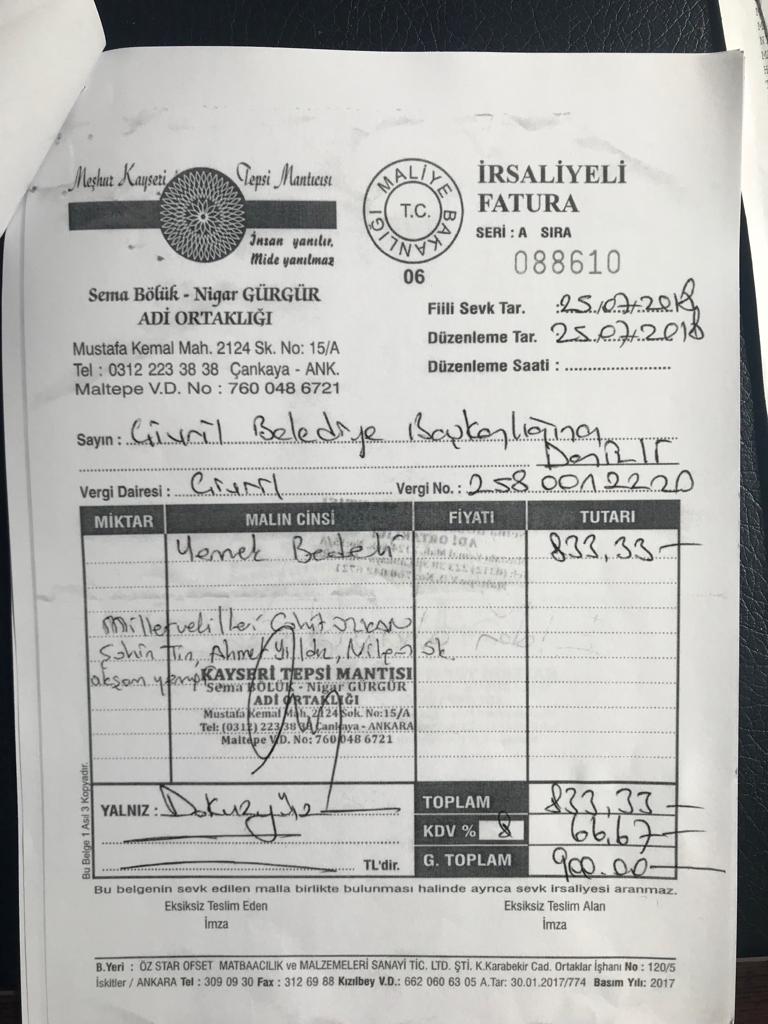 Meşhur Kayseri Tepsi Mantıcısı
İnsan yanılır,
Mide yanılmaz
Sema Bölük - Nigar GÜRGÜR
ADİ ORTAKLIĞI
Mustafa Kemal Mah. 2124 Sk. No: 15/A
Tel : 0312 223 38 38 Çankaya - ANK.
Maltepe V.D. No : 760 048 6721
T.C. MALİYE BAKANLIĞI
06
İRSALİYELİ
FATURA
SERİ : A SIRA
088610
Fiili Sevk Tar. : 25.07.2018
Düzenleme Tar. 25.07.2018
Düzenleme Saati :
Sayın : Çivril Belediye Başkanlığına
Denizli
Vergi Dairesi : Çivril Vergi No. : 258 001 2220
MİKTAR MALIN CİNSİ FİYATI TUTARI
Yemek Bedeli 833,33
Milletvekilleri Cahit Özkan
Şahin Tin, Ahmet Yıldız, Nilgün ok.
akşam yemeği
KAYSERİ TEPSİ MANTISI
Sema BÖLÜK - Nigar GÜRGÜR
ADİ ORTAKLIĞI
Mustafa Kemal Mah. 2124 Sok. No:15/A
Tel: (0312) 223 38 38 Çankaya - ANKARA
Maltepe V.D. No: 760 048 6721
YALNIZ : Dokuzyüz
TL'dir.
TOPLAM 833,33
KDV % 8 66,67
G. TOPLAM 900.00
Bu Belge 1 Asıl 3 Kopyadır.
Bu belgenin sevk edilen malla birlikte bulunması halinde ayrıca sevk irsaliyesi aranmaz.
Eksiksiz Teslim Eden Eksiksiz Teslim Alan
İmza İmza
B.Yeri : ÖZ STAR OFSET MATBAACILIK ve MALZEMELERİ SANAYİ TİC. LTD. ŞTİ. K.Karabekir Cad. Ortaklar İşhanı No : 120/5
İskitler / ANKARA Tel : 309 09 30 Fax : 312 69 88 Kızılbey V.D.: 662 060 63 05 A.Tar: 30.01.2017/774 Basım Yılı: 2017